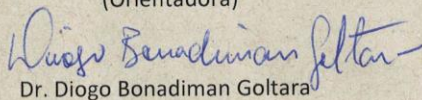 (Orientadora)
Diogo Bonadiman Goltara
Dr. Diogo Bonadiman Goltara